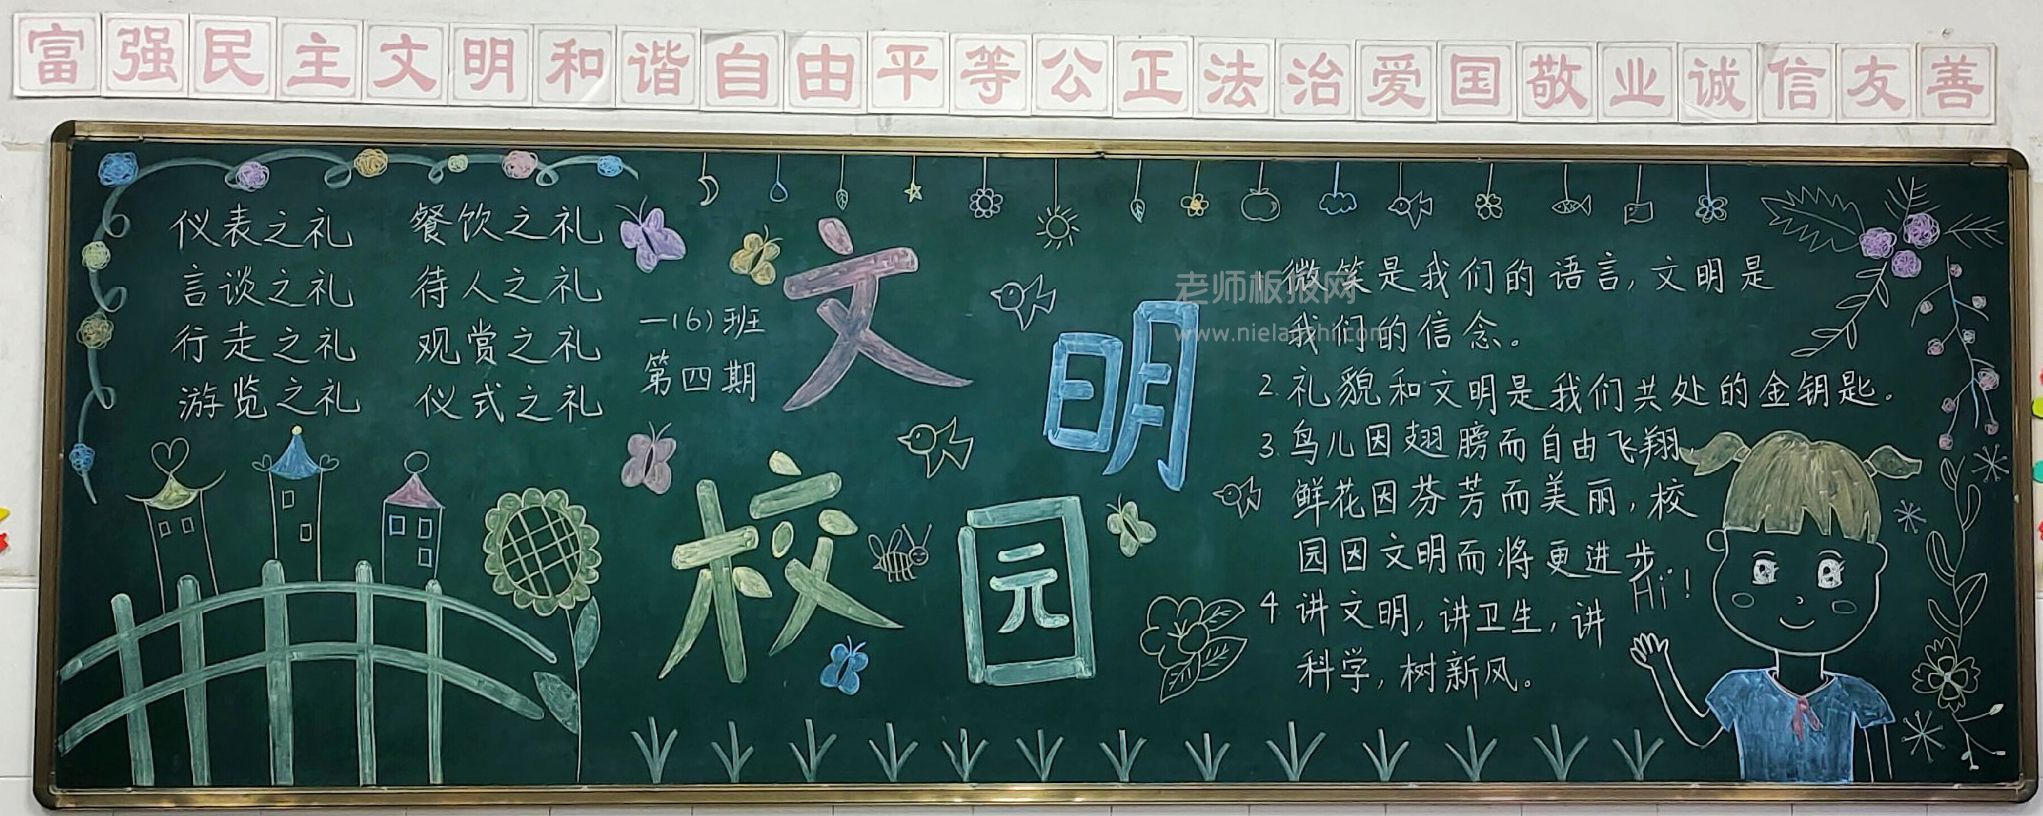 富强民主文明和谐自由平等公正法治爱国敬业诚信友善
仪表之礼 餐饮之礼
言谈之礼 待人之礼
行走之礼 观赏之礼
游览之礼 仪式之礼
一(6)班
第四期
文明
校园
老师板报网
www.nielaoshi.com
1.微笑是我们的语言,文明是
我们的信念。
2.礼貌和文明是我们共处的金钥匙。
3.鸟儿因翅膀而自由飞翔,
鲜花因芬芳而美丽,校
园因文明而将更进步.
4 讲文明,讲卫生,讲
科学,树新风。
Hi!